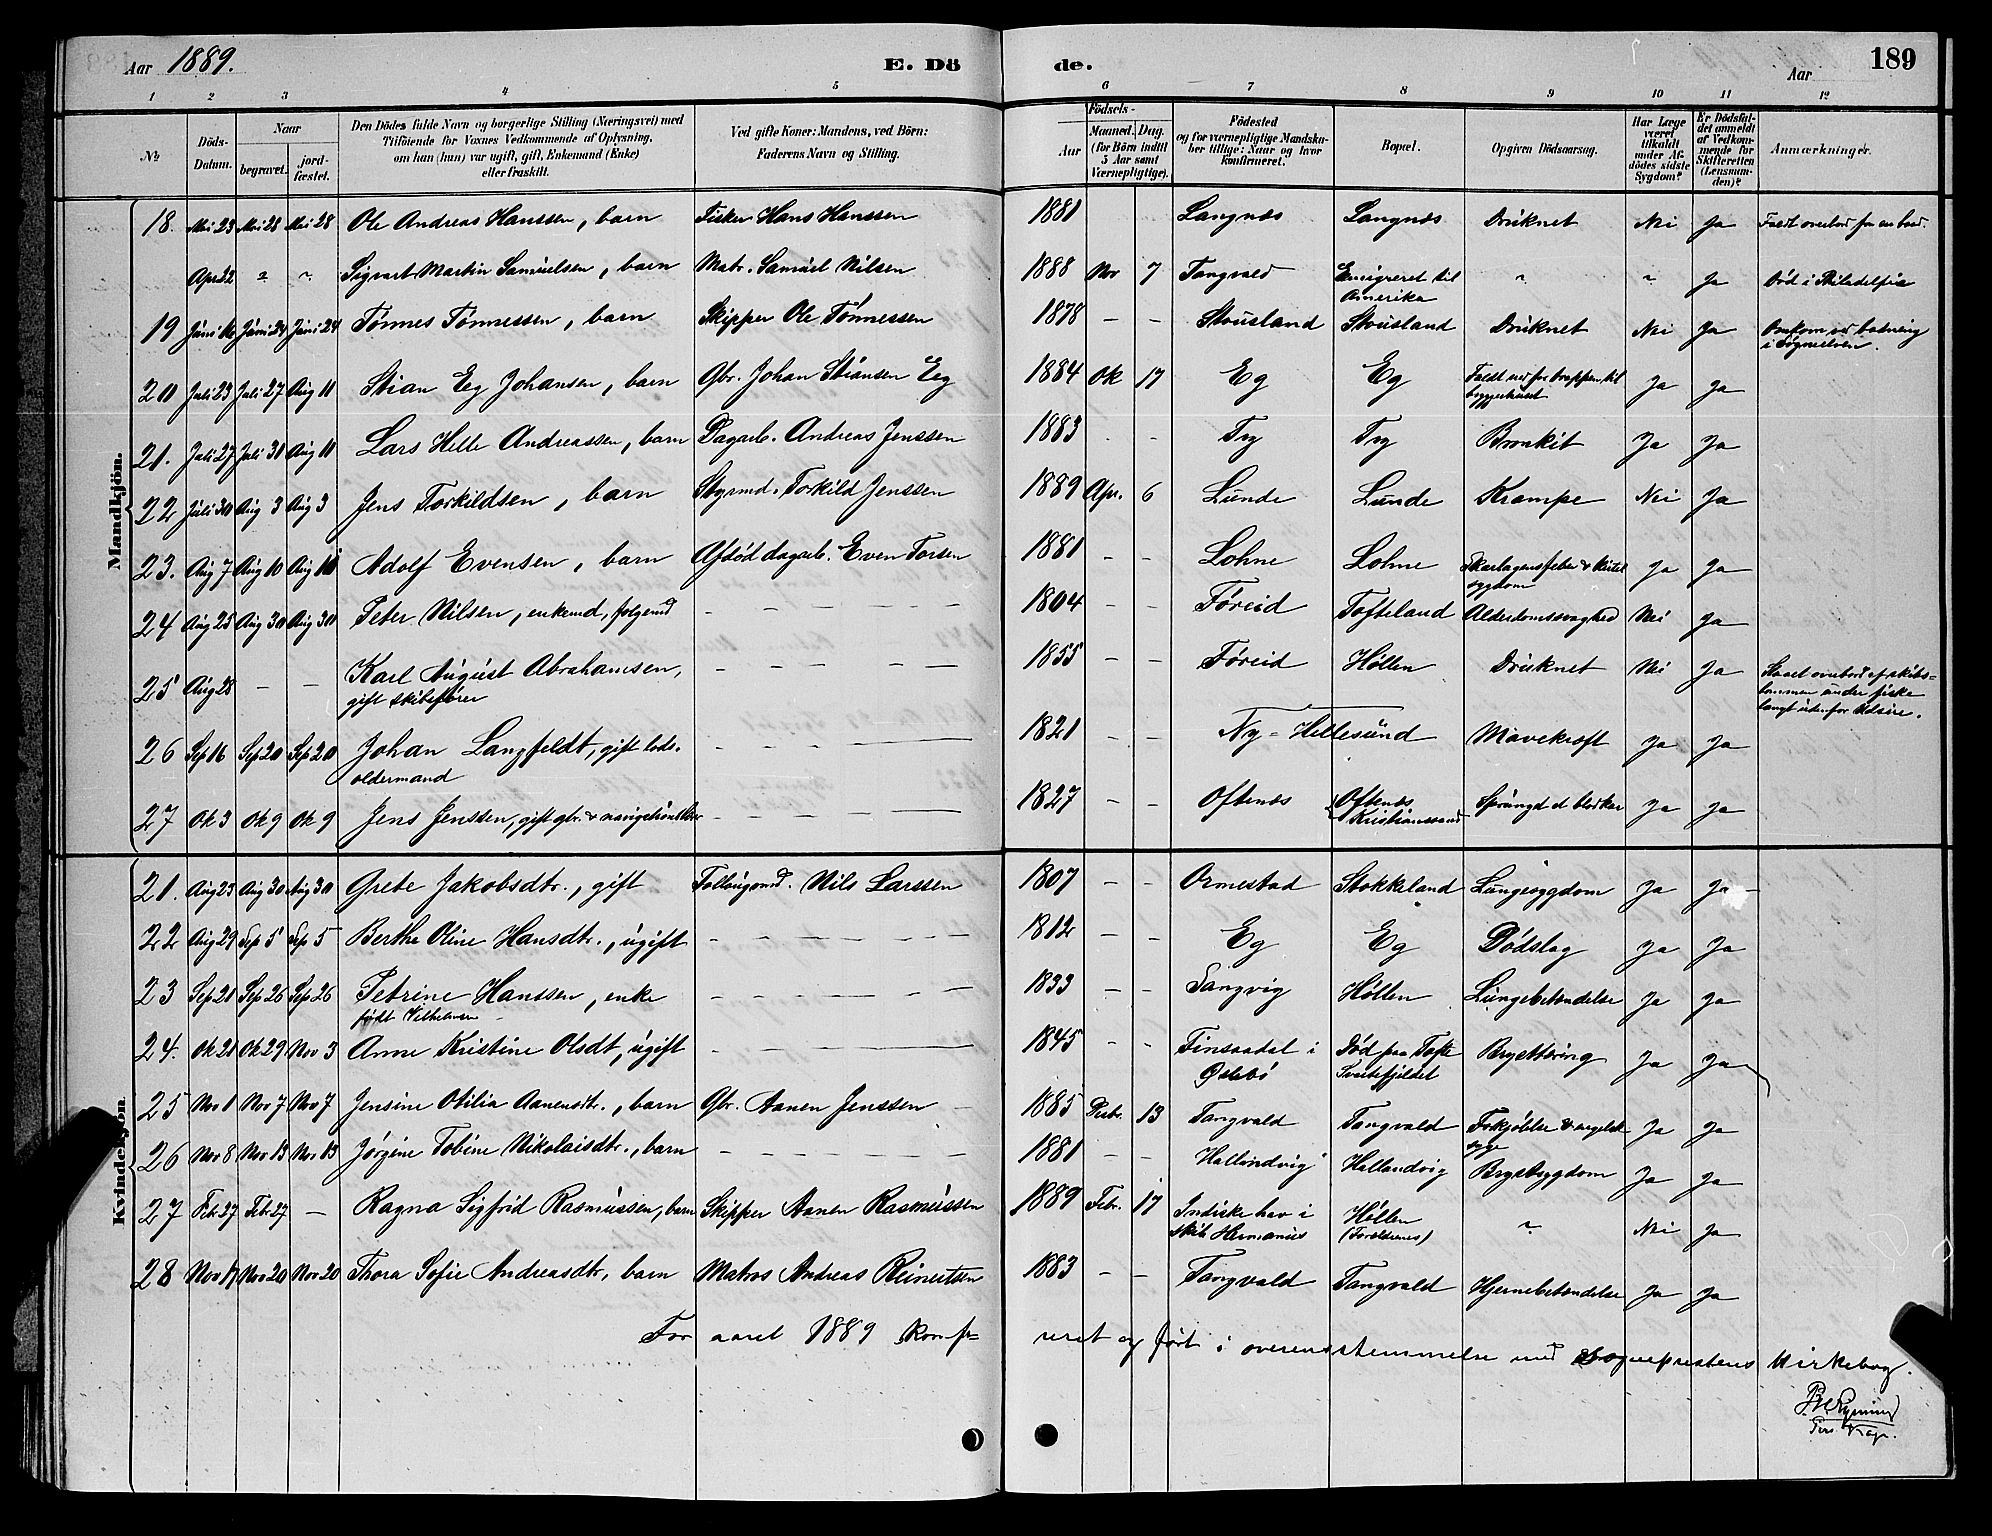 Aar 1889. E. Dö de. Aar 189
1 2 3 4 5 6 7 8 9 10 11 12
№ Döds-Datum. Naar begravet. jordfæstet. Den Dödes fulde Navn og borgerlige Stilling (Næringsvei) med Tilföiende for Voxnes Vedkommende af Oplysning, om han (hun) var ugift, gift, Enkemand (Enke) eller fraskilt. Ved gifte Koner: Mandens, ved Börn: Faderens Navn og Stilling. Födsels- Aar Maaned. Dag. (for Börn indtil 5 Aar samt Værnepligtige). Födested og for værnepligtige Mandskaber tillige: Naar og hvor konfirmeret. Bopæl. Opgiven Dödsaarsag. Har Læge været tilkaldt under Afdödes sidste Sygdom? Er Dödsfaldet anmeldt af Vedkommende for Skifteretten (Lensmanden)? Anmærkninger.
Mandkjön.
18. Mai 23 Mai 28 Mai 28 Ole Andreas Hanssen, barn Fisker Hans Hanssen 1881 Langnæs Langnæs Druknet Nei Ja Faldt overbord fra en baad.
Apr 22 " " Sigvart Martin Samuelsen, barn Matr. Samuel Nilsen 1888 Nov 7 Tangvald Emigreret til Amerika " " Ja Död i Philadelfia
19 Juni 16 Juni 24 Juni 24 Tønnes Tønnessen, barn Skipper Ole Tønnessen 1878 – – Stousland Stousland Druknet Nei Ja Omkom ved badning i Søgneelven.
20 Juli 23 Juli 27 Aug 11 Stian Eeg Johansen, barn Gbr. Johan Stiansen Eeg 1884 Ok 17 Eg Eg Faldt ned for trappen til bryggerhuset Ja Ja
21. Juli 27 Juli 31 Aug 11 Lars Helle Andreassen, barn Dagarb. Andreas Jenssen 1883 - - Try Try Bronkit Ja Ja
22 Juli 30 Aug 3 Aug 3 Jens Torkildsen, barn Styrmd. Torkild Jenssen 1889 Apr. 6 Lunde Lunde Krampe Nei Ja
23. Aug 7 Aug 10 Aug 11 Adolf Evensen, barn Afdöd dagarb. Even Torsen 1881 – – Lohne Lohne Skarlagensfeber & kirtelsygdom Ja Ja
24 Aug 25 Aug 30 Aug 30 Peter Nilsen, enkemd, folgemd – – – 1804 – – Føreid Tofteland Alderdomssvaghed Nei Ja
25 Aug 28 – – Karl August Abrahamsen, gift skibsfører – – – 1855 – – Føreid Høllen Druknet Nei Ja Slaaet overbord af skibsbommen under fiske langt udenfor Udsire.
26 Sep 16 Sep 20 Sep 20 Johan Langfeldt, gift lodsoldermand – – – 1821 – – Ny-Hellesund Mavekræft Ja Ja
27 Ok 3 Ok 9 Ok 9 Jens Jenssen, gift gbr. & navigationslærer – – – 1827 – – Oftenæs Oftenæs Kristianssand Sprungd et blodkar Ja Ja
Kvindekjön.
21. Aug 23 Aug 30 Aug 30 Grete Jakobsdtr., gift Follaugsmd. Nils Larssen 1807 – – Ormestad Stokkeland Lungesygdom Ja Ja
22 Aug 29 Sep 5 Sep 5 Berthe Oline Hansdtr., ugift – – – 1812 – – Eg Eg Dødslag Ja Ja
23 Sep 21 Sep 26 Sep 26 Petrine Hanssen, enke født Vilhelmsen – – – 1833 – – Sangvig Høllen Lungebetændelse Ja Ja
24. Ok 21 Ok 29 Nov 3 Anne Kristine Olsdt, ugift – – – 1845 – – Finsaadal i Øslebö Død paa Tofte Svartefjeldet Brysttæring Ja Ja
25 Nov 1 Nov 7 Nov 7 Jensine Otilia Aanensdtr., barn Gbr. Aanen Jenssen 1885 Debr. 13 Tangvald Tangvald Forkjølelse & engelsk syge Ja Ja
26 Nov 8 Nov 13 Nov 13 Jørgine Tobine Nikolaisdtr., barn – – – 1881 – – Hallandvig Hallandvig Brystsygdom Ja Ja
27 Febr 27 Febr 27 – Ragna Sigfrid Rasmussen, barn Skipper Aanen Rasmussen 1889 Febr. 17 Indiske hav i skib Hermanus Høllen (Forældrenes) " Nei Ja
28 Nov 17 Nov 20 Nov 20 Thora Sofie Andreasdtr, barn Matros Andreas Reinertsen 1883 – – Tangvald Tangvald Hjernebetændelse Ja Ja
For aaret 1889 konfereret og ført i overensstemmelse med Sogneprestens Kirkebog.